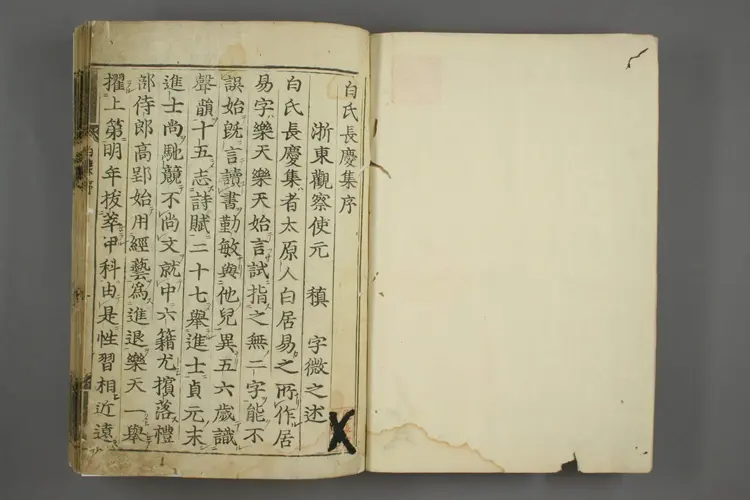 白氏長慶集序
浙東觀察使元 稹 字微之述
白氏長慶集者太原人白居易之所作居
易字樂天樂天始言試指之無二字能不
誤始旣言讀書勤敏與他兒異五六歲識
聲韻十五志詩賦二十七舉進士貞元末
進士尚馳競不尚文就中六籍尤擯落禮
部侍郎高郢始用經藝爲進退樂天一舉
擢上第明年拔萃甲科由是性習相近遠